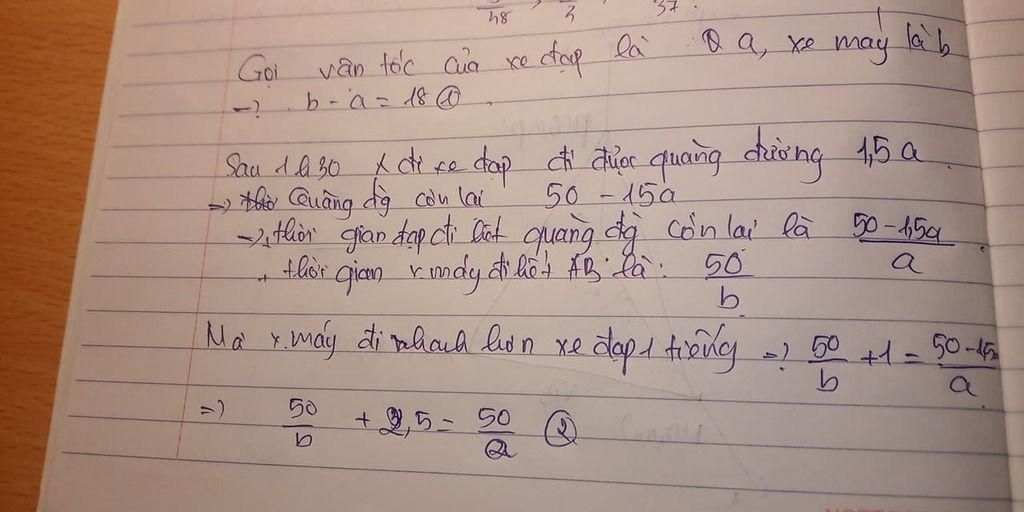 48 3 37.
Gọi vận tốc của xe đạp là a, xe máy là b
=> b - a = 18 ①
Sau 1h30 xe đạp đi được quãng đường 1,5a
=> Quãng đg còn lại 50 - 15a
=> + thời gian đạp đi hết quãng đg còn lại là \frac{50 - 1,5a}{a}
+ thời gian x máy đi hết AB là: \frac{50}{b}
Mà x.máy đi nhanh hơn xe đạp 1 tiếng => \frac{50}{b} + 1 = \frac{50 - 1,5a}{a}
=> \frac{50}{b} + 2,5 = \frac{50}{a} ②